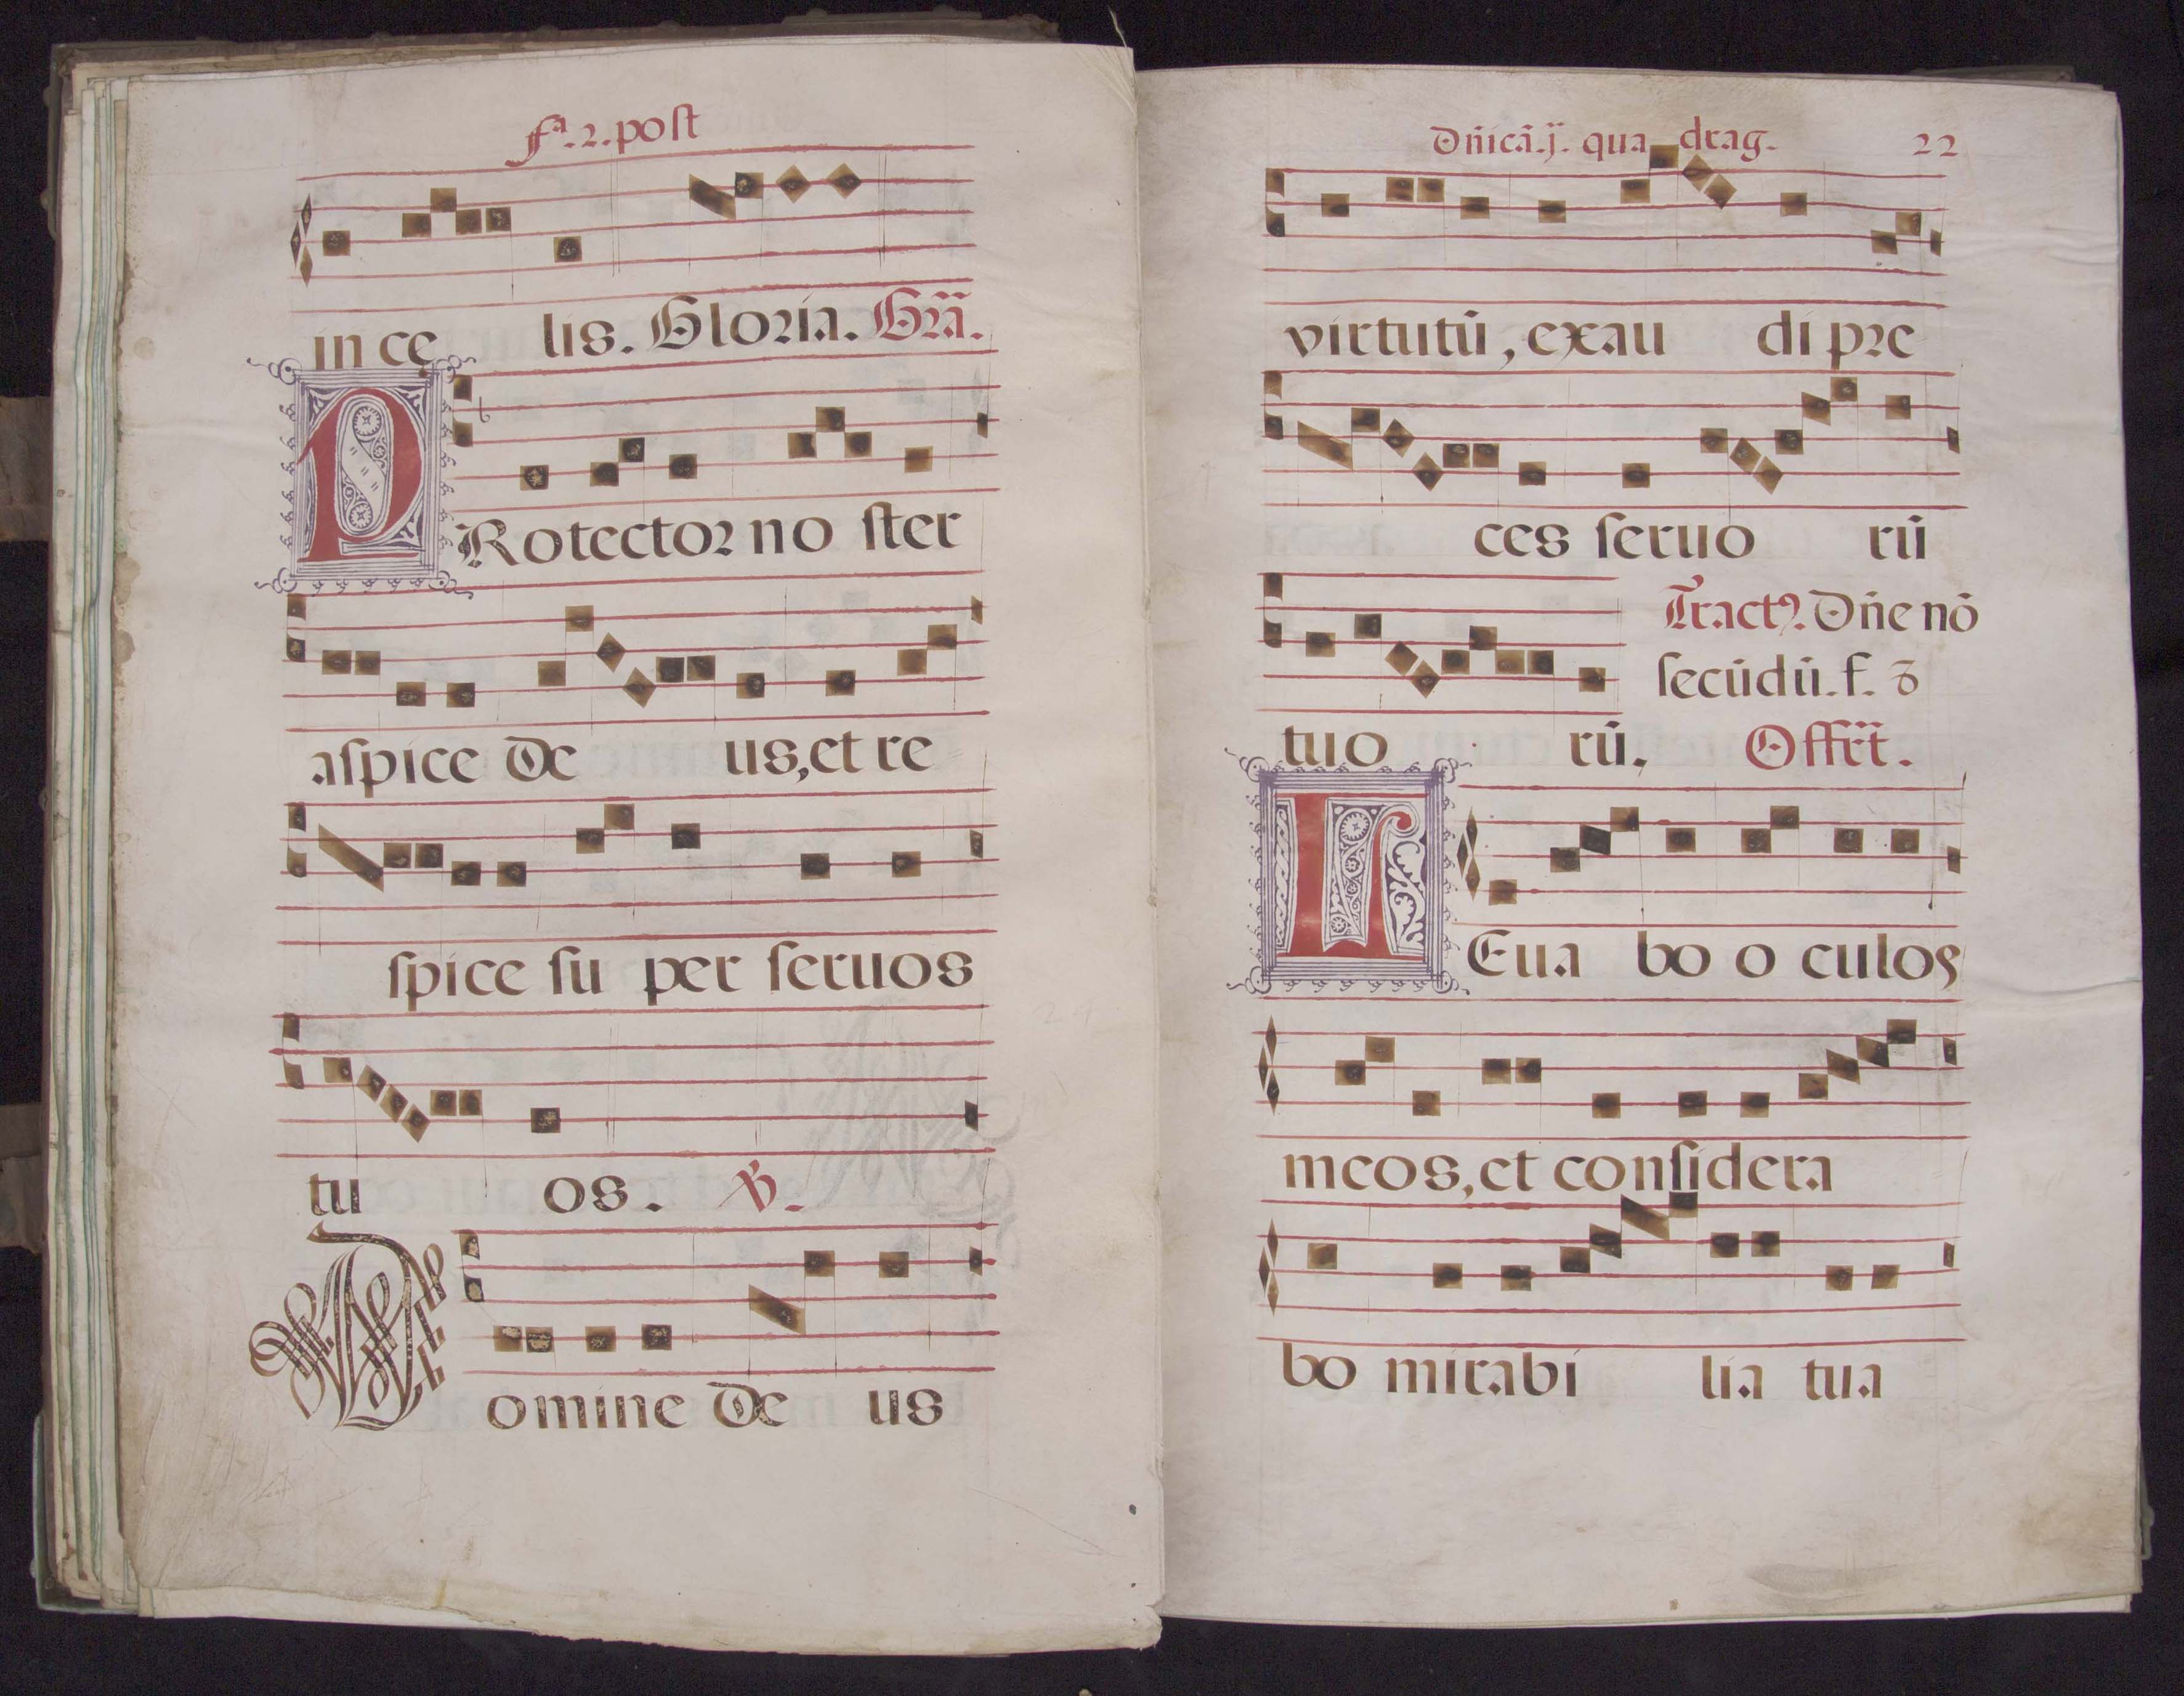 fª. 2. post
in ce lis. Gloria. Grã.
PRotector no ster
aspice De us, et re
spice su per seruos
tu os. ℣.
Domine De us
Dñicã. j. qua drag. 22
virtutũ, exau di pre
ces seruo rũ
Tractꝰ. Dñe nõ
secũdũ. f. 8
tuo rũ. Offrt.
LEua bo o culos
meos, et considera
bo mirabi lia tua